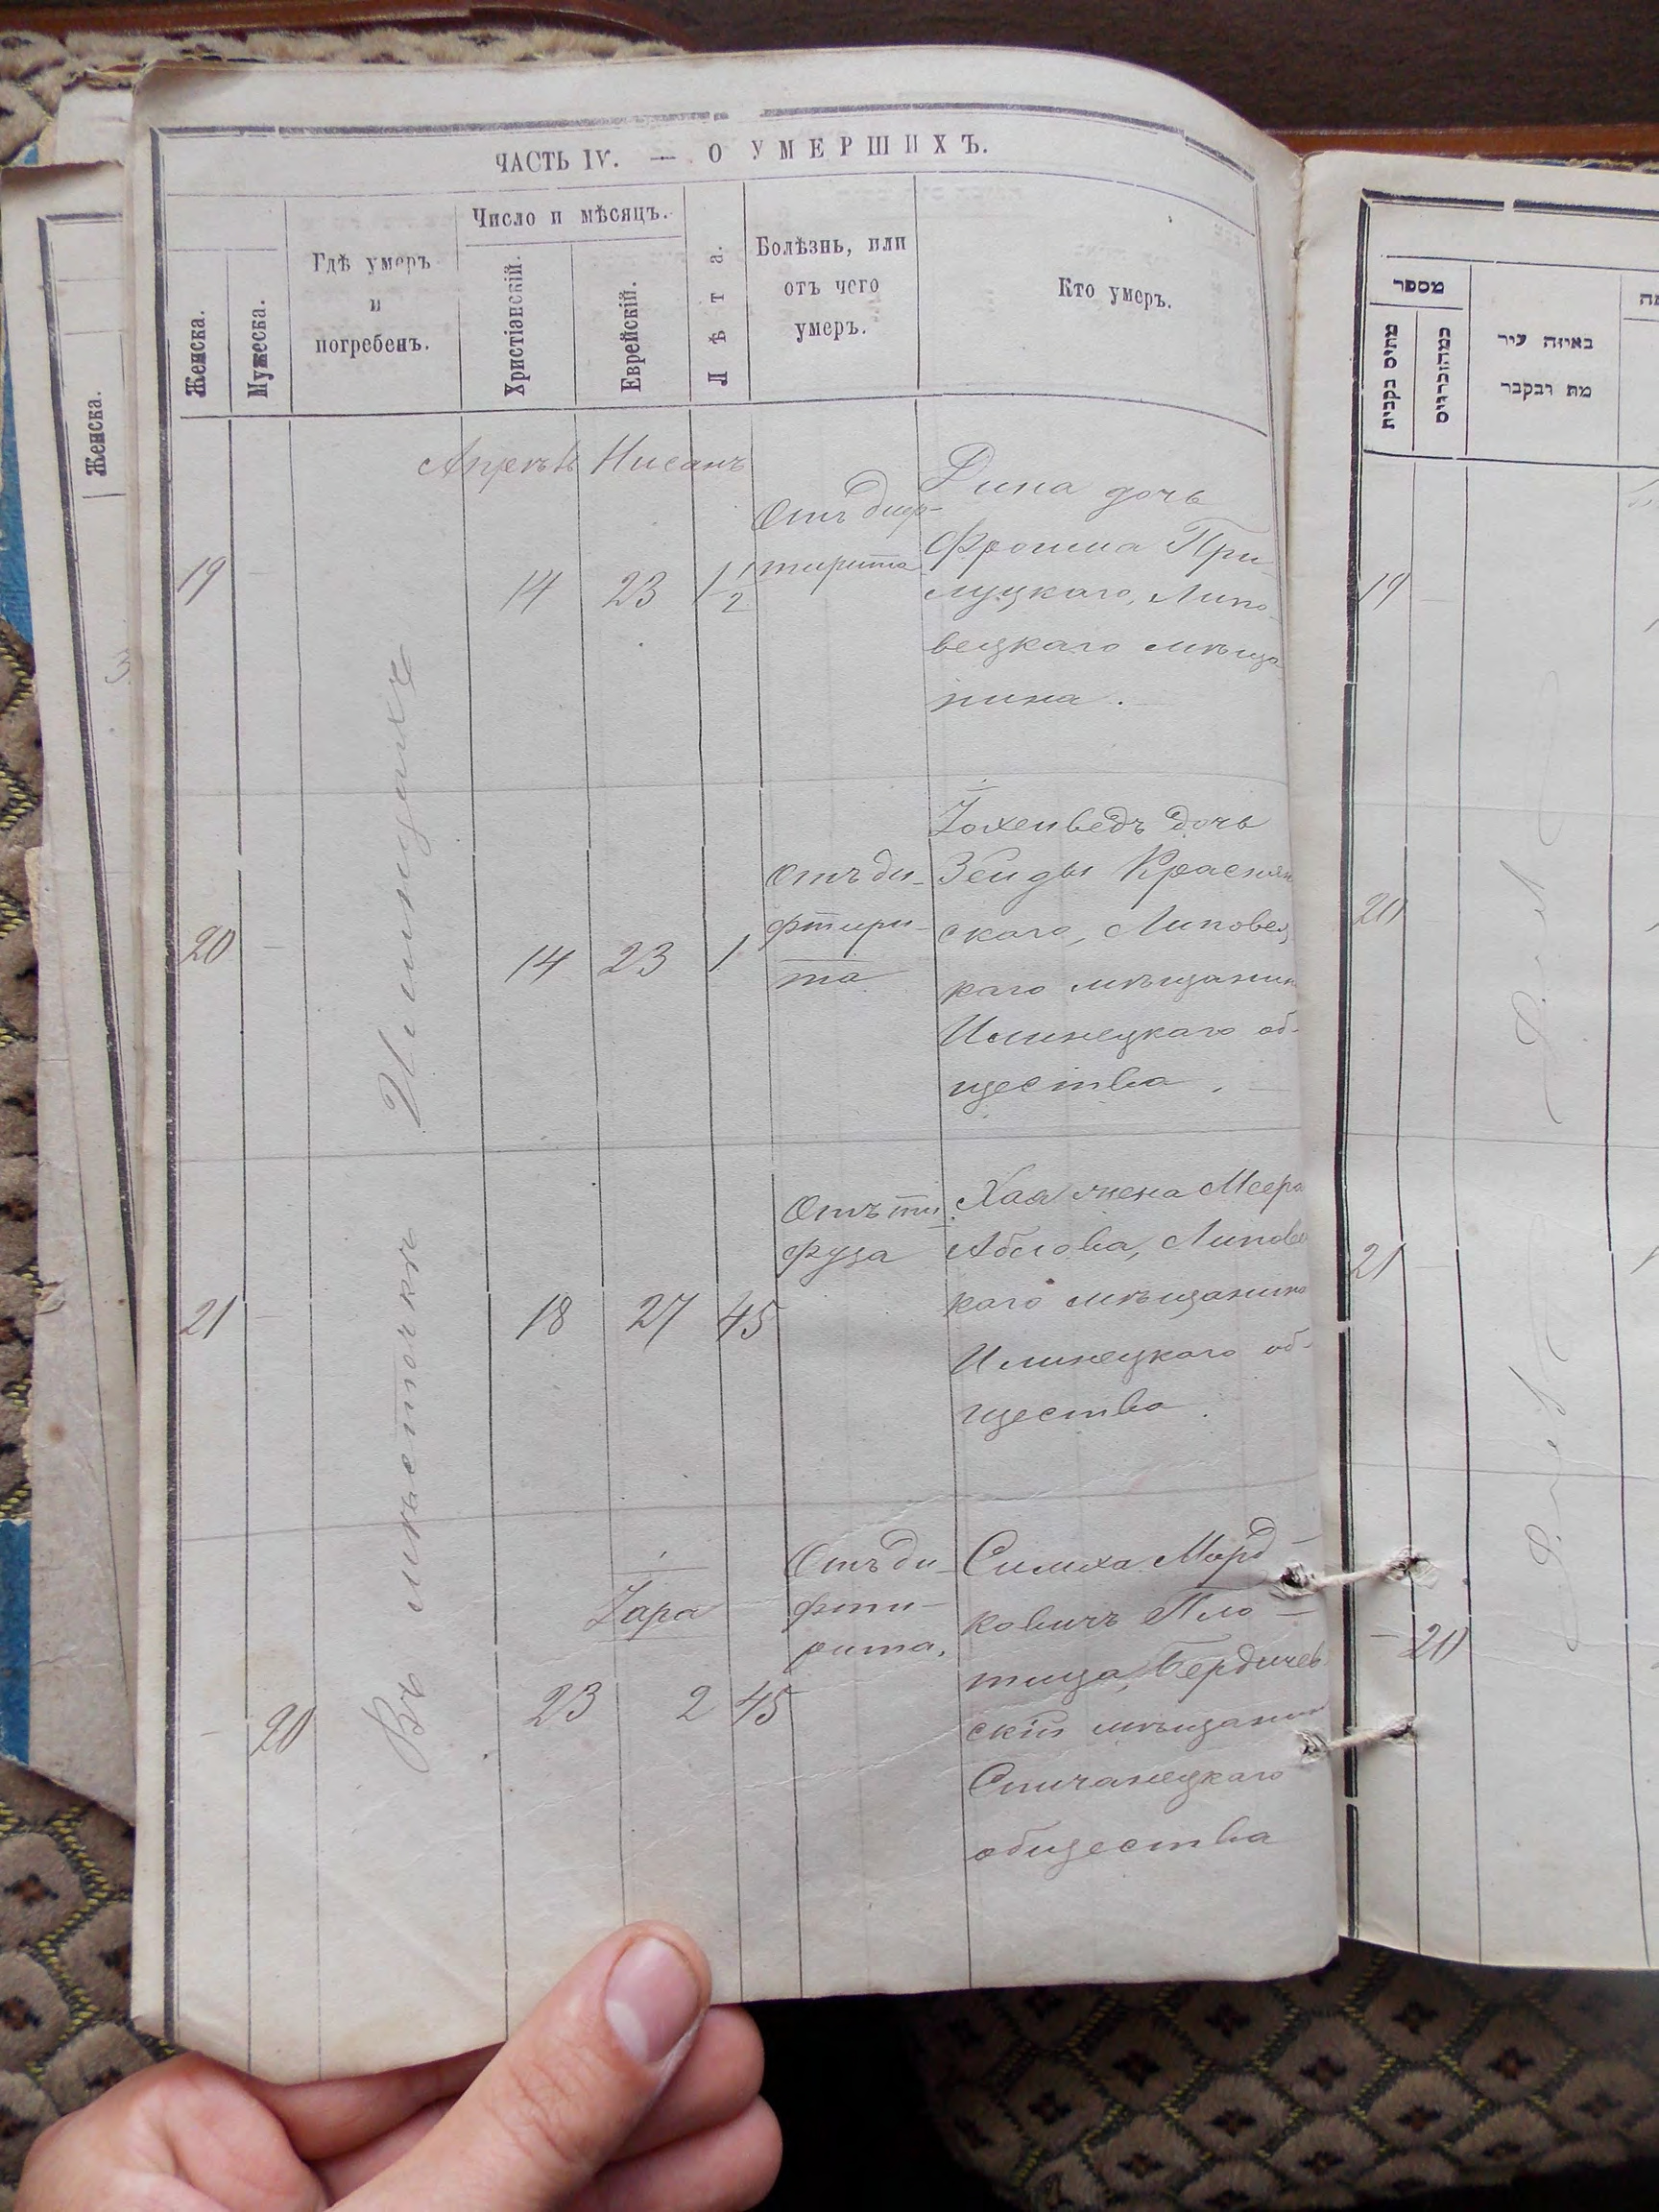 ЧАСТЬ IV. — О УМЕРШИХЪ.
Женска.
Мужеска.
Гдѣ умеръ
и
погребенъ.
Число и мѣсяцъ.
Христіанскій.
Еврейскій.
Лѣта.
Болѣзнь, или
отъ чего
умеръ.
Кто умеръ.
Въ мѣстечкѣ Илинцахъ
Апрель Нисанъ
19 — 14 23 1 1/2
Отъ диф-
тирита
Дина дочь
Фроима При
луцкаго, Липо
вецкаго мѣща
нина.
20 — 14 23 1
Отъ ди-
фтири-
та
Іохенведъ дочь
Зейды Краснян
скаго, Липовец
каго мѣщанина
Илинецкаго об-
щества.
21 — 18 27 45
Отъ ти
фуза
Хая жена Меера
Аблова, Липовец
каго мѣщанина
Илинецкаго об-
щества.
Іара
— 20 23 2 45
Отъ ди-
фти-
рита.
Симха Морд-
ковичъ Пло-
тица, Бердичев
скій мѣщанин
Спичанецкаго
общества
Женска.
מספר
מתים נקבות
באיזה עיר
מת ונקבר
19
20
21
— 20